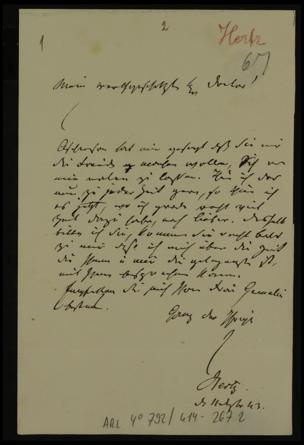 1
2
Hertz
67
Mein werthgeschätzter Herr Doctor!
hat mir gesagt daß Sie mir
die Freude machen wollen, sich von
mir malen zu lassen. Thu ich das
nun zu jeder Zeit gern, so thue ich
es jetzt, wo ich grade recht viel
Zeit dazu habe, noch lieber. Deshalb
bitte ich Sie, kommen Sie recht bald
zu mir daß ich mich über die Zeit
die Ihnen u mir die gelegenste ist,
mit Ihnen besprechen kann.
Empfehlen Sie mich Ihrer Frau Gemalin
bestens.
Ganz der Ihrige
Hertz
ARL 4° 792/414-267.2